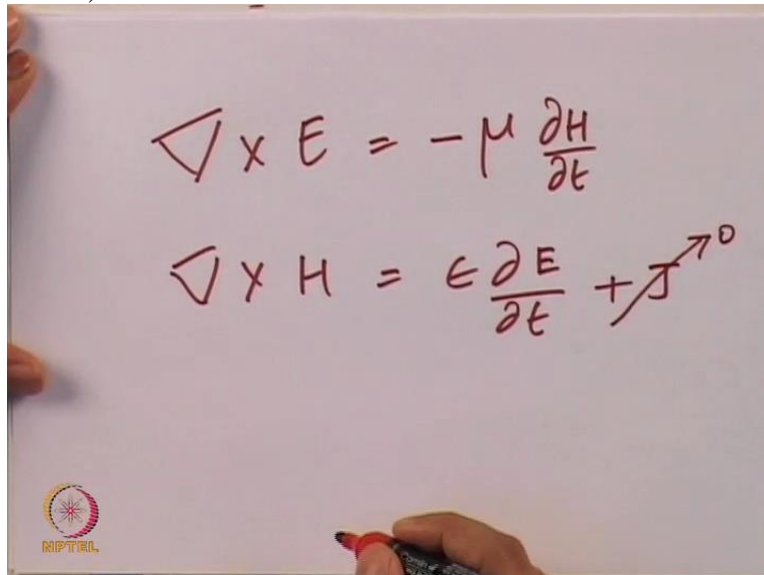 ∇ × E = - μ ∂H/∂t
∇ × H = ϵ ∂E/∂t + J → 0
NPTEL